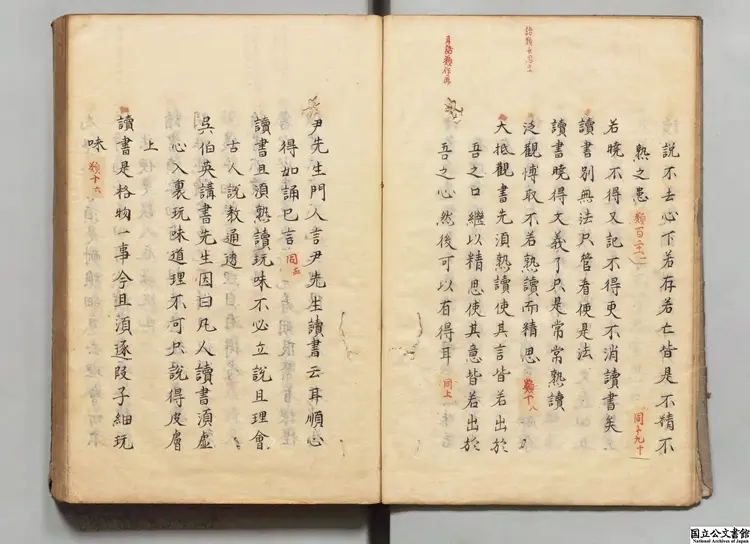 說不去心下若存若亡皆是不精不
熟之患
若曉不得又記不得更不消讀書矣 同十九十
讀書別無法只管看便是法
讀書曉得文義了只是常常熟讀
泛觀博取不若熟讀而精思 類十八
大抵觀書先須熟讀使其言皆若出於
吾之口繼以精思使其意皆若出於
吾之心然後可以有得耳 同上
尹先生門人言尹先生讀書云耳順心
得如誦已言 同五
讀書且須熟讀玩味不必立說且理會
古人說教通透
吳伯英講書先生因曰凡人讀書須虛
心入裏玩味道理不可只說得皮膚
上
讀書是格物一事今且須逐段子細玩
味 類十六
国立公文書館
National Archives of Japan